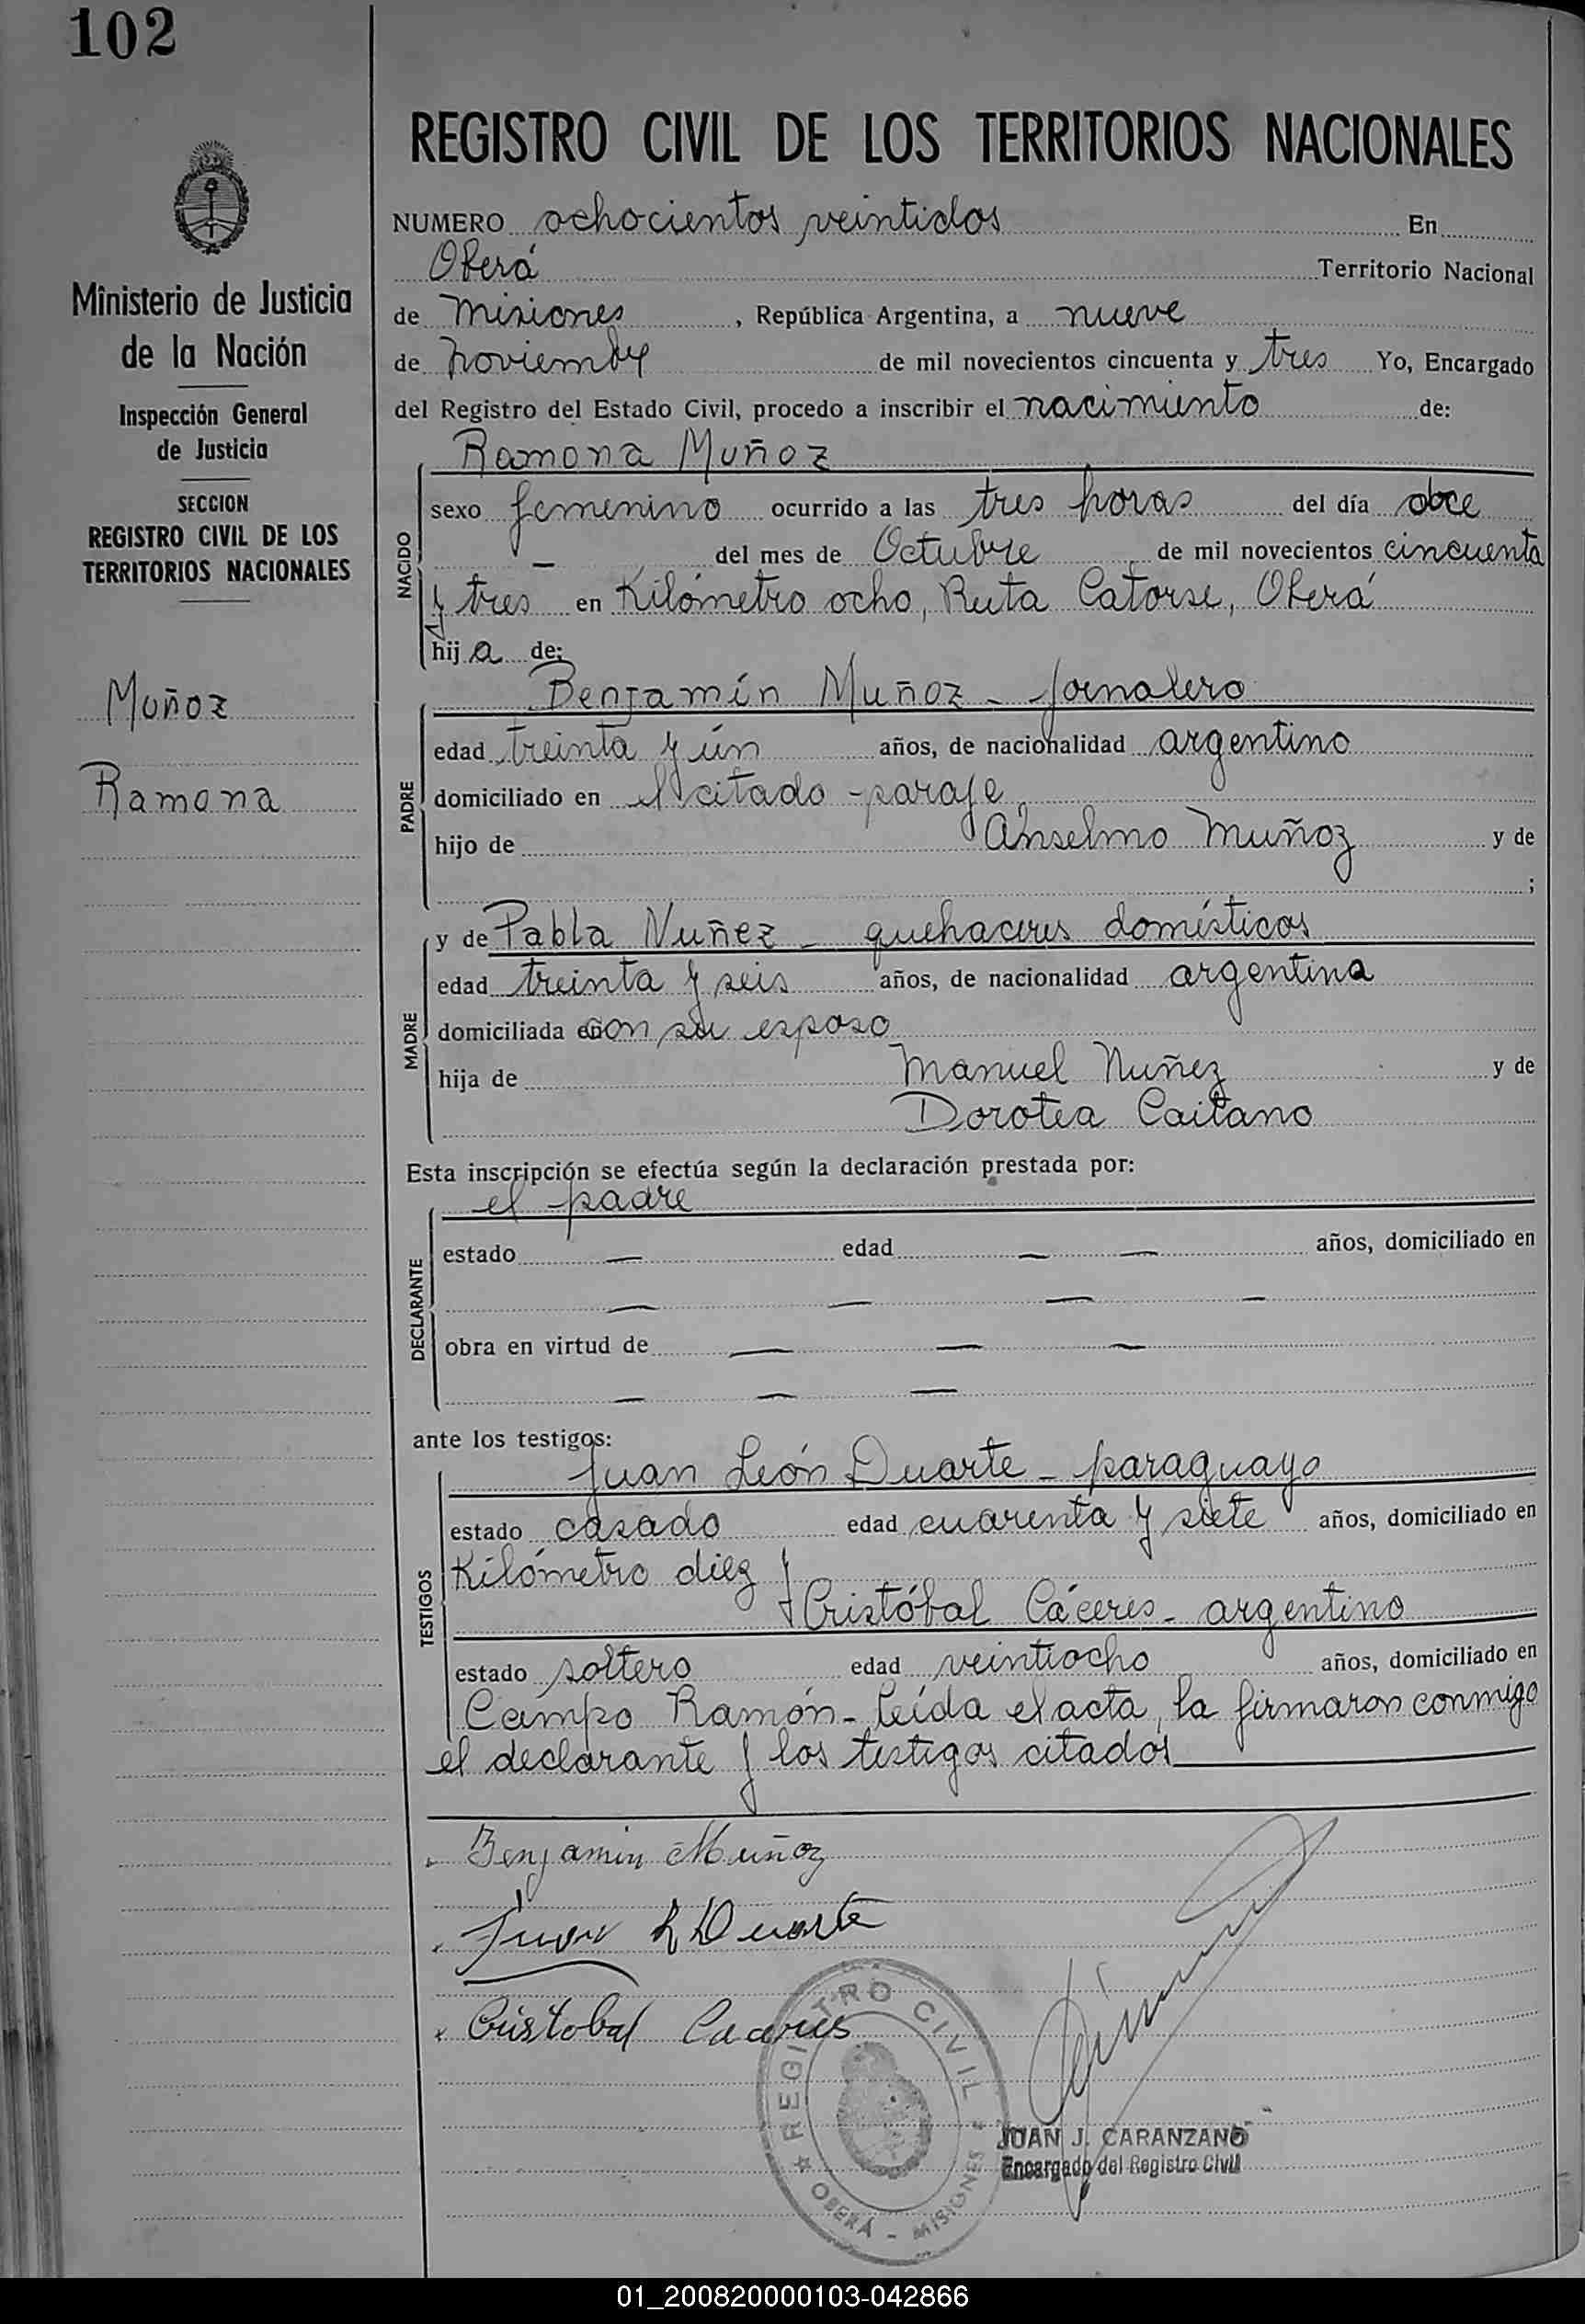 102
REGISTRO CIVIL DE LOS TERRITORIOS NACIONALES
Ministerio de Justicia
de la Nación
Inspección General
de Justicia
SECCION
REGISTRO CIVIL DE LOS
TERRITORIOS NACIONALES
Muñoz
Ramona
NUMERO ochocientos veintidos En
Oberá Territorio Nacional
de Misiones, República Argentina, a nueve
de noviembre de mil novecientos cincuenta y tres Yo, Encargado
del Registro del Estado Civil, procedo a inscribir el nacimiento de:
NACIDO
Ramona Muñoz
sexo femenino ocurrido a las tres horas del día
— del mes de Octubre de mil novecientos cincuenta
y tres en Kilómetro ocho, Ruta Catorse, Oberá
hija de:
PADRE
Benjamín Muñoz - jornalero
edad treinta y ún años, de nacionalidad argentino
domiciliado en el citado paraje
hijo de Anselmo Muñoz y de
;
MADRE
y de Pabla Nuñez - quehaceres domésticos
edad treinta y seis años, de nacionalidad argentina
domiciliada con su esposo
hija de Manuel Nuñez y de
Dorotea Caitano
Esta inscripción se efectúa según la declaración prestada por:
DECLARANTE
el padre
estado — edad — — años, domiciliado en
— — — —
obra en virtud de — — —
— — —
ante los testigos:
TESTIGOS
Juan León Duarte - paraguayo
estado casado edad cuarenta y siete años, domiciliado en
Kilómetro diez y
Cristóbal Cáceres - argentino
estado soltero edad veintiocho años, domiciliado en
Campo Ramón - leída el acta, la firmaron conmigo
el declarante y los testigos citados
Benjamin Muñoz
Juan L Duarte
Cristobal Caceres
REGISTRO CIVIL
OBERÁ - MISIONES
JUAN J. CARANZANO
Encargado del Registro Civil
01_200820000103-042866